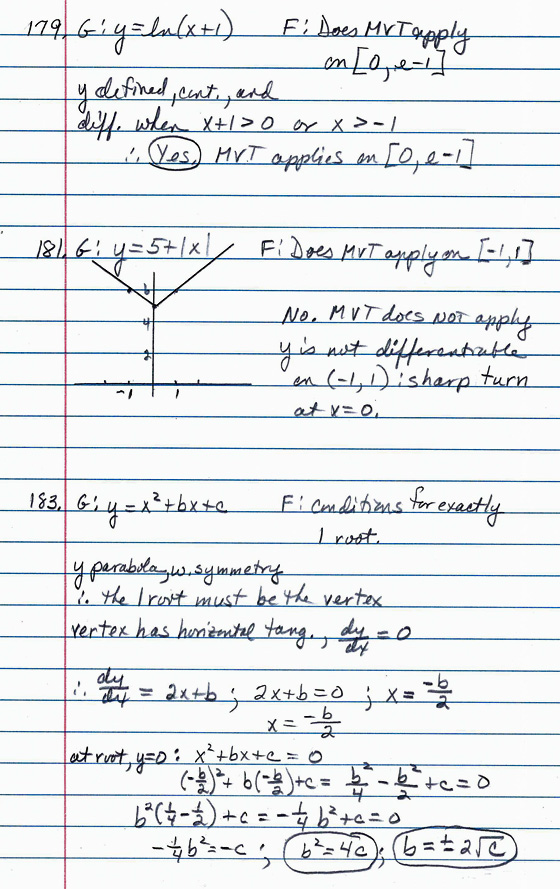 179. G: y = ln(x+1) F: Does MVT apply
on [0, e-1]
y defined, cont., and
diff. when x+1 > 0 or x > -1
∴ Yes. MVT applies on [0, e-1]
181. G: y = 5+|x| F: Does MVT apply on [-1,1]
6
4
2
-1 1
No. MVT does NOT apply
y is not differentiable
on (-1,1) : sharp turn
at x=0.
183. G: y = x²+bx+c F: conditions for exactly
1 root.
y parabola, w. symmetry
∴ the 1 root must be the vertex
vertex has horizontal tang., dy/dx = 0
∴ dy/dx = 2x+b ; 2x+b=0 ; x = -b/2
x = -b/2
at root, y=0 : x²+bx+c = 0
(-b/2)² + b(-b/2)+c = b²/4 - b²/2 + c = 0
b²(1/4 - 1/2) + c = -1/4 b² + c = 0
-1/4 b² = -c ; b² = 4c ; b = ±2√c